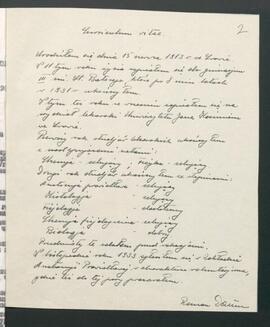 2
Curriculum vitae
Urodziłem się dnia 15 marca 1913 r. w Lwowie
W tym roku życia zapisałem się do gimnazjum
III im. St. Batorego, które po 8 miu latach
w 1931 r. ukończyłem.
W tym też roku w jesieni zapisałem się na
wydział lekarski Uniwersytetu Jana Kazimierza
we Lwowie.
Pierwszy rok studjów lekarskich ukończyłem
z następującemi notami:
Chemja - celujący, Fizyka - celujący
Drugi rok studjów ukończyłem ze stopniami:
Anatomja prawidłowa - celujący
Histologja - celujący
Fizjologja - dostateczny
Chemja fizjologiczna - celujący
Biologja - dobry
Przedmioty te zdałem przed wakacjami.
W listopadzie roku 1933 zgłosiłem się w Zakładzie
Anatomji Prawidłowej w charakterze volontarjusza,
gdzie też do tej pory pracowałem.
Roman